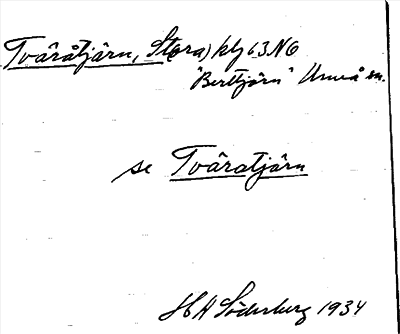 Tväråtjärn, Stora) kbl 63 N6
"Berttjärn" Umeå sn.
se Tväratjärn
H A Söderberg 1934